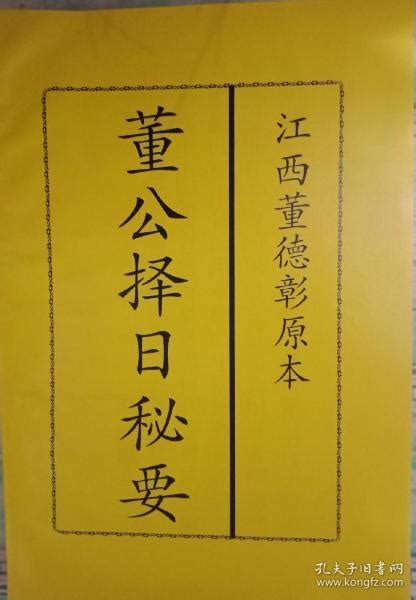 江西董德彰原本
董公择日秘要
孔夫子旧书网
www.kongfz.com